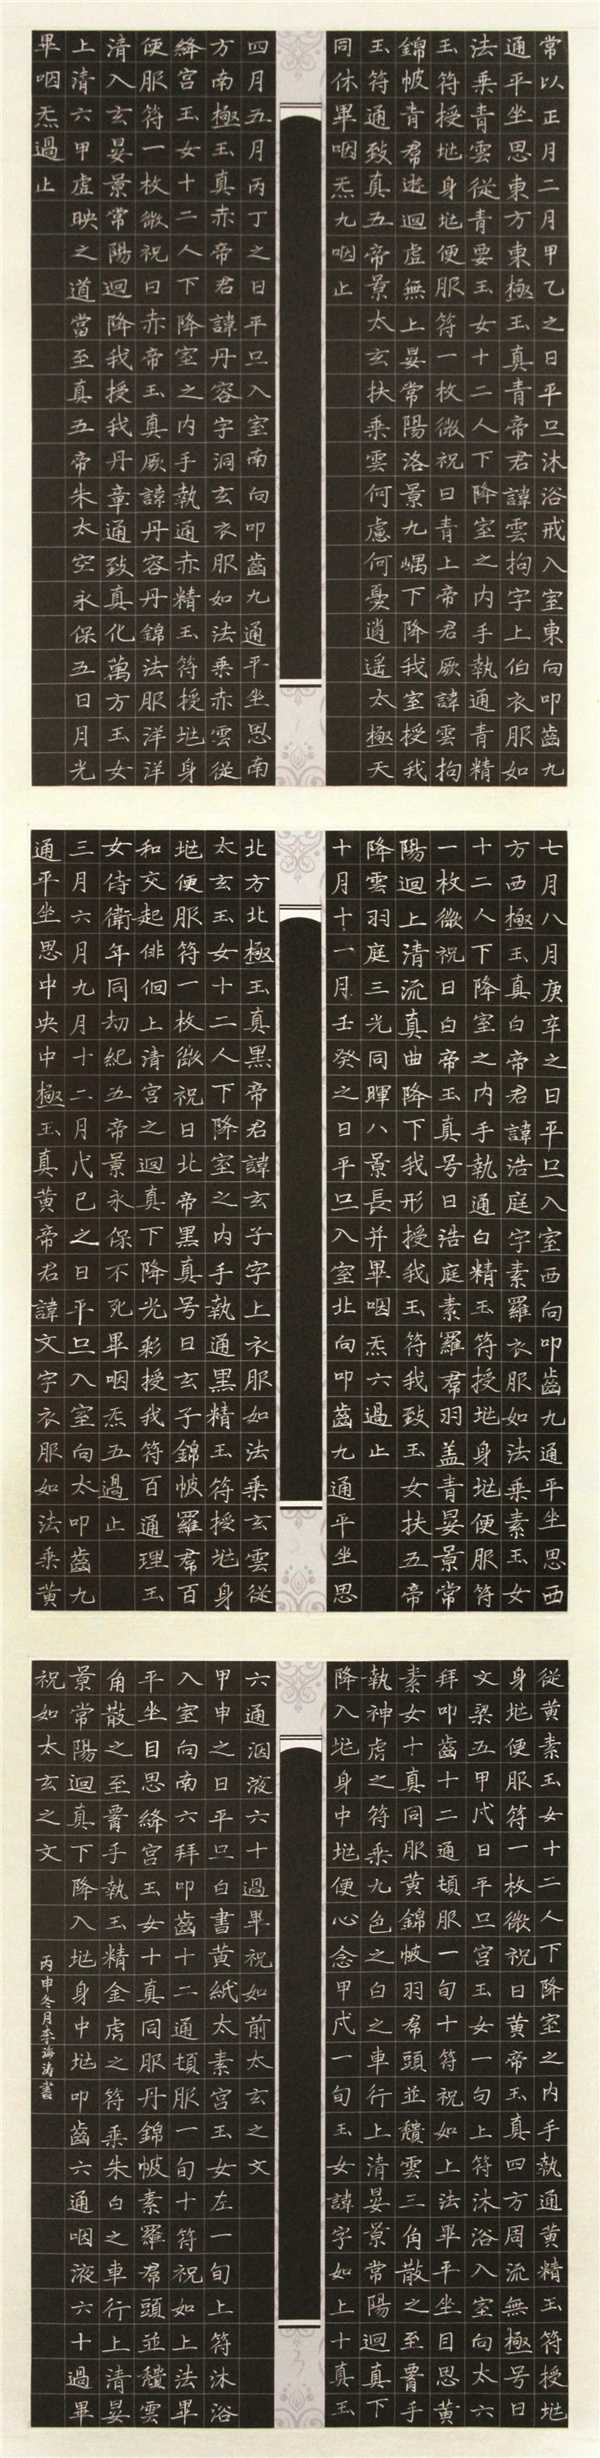 常以正月二月甲乙之日平旦沐浴戒入室東向叩齒九
通平坐思東方東極玉真青帝君諱雲拘字上伯衣服如
法乘青雲從青要玉女十二人下降室之内手執通青精
玉符授地身地便服符一枚微祝曰青上帝君厥諱雲拘
錦帔青帬遊迴虛無上晏常陽洛景九嵎下降我室授我
玉符通致真五帝景太玄扶乘雲何慮何憂逍遥太極天
同休畢咽炁九咽止
四月五月丙丁之日平旦入室南向叩齒九通平坐思南
方南極玉真赤帝君諱丹容字洞玄衣服如法乘赤雲從
絳宮玉女十二人下降室之内手執通赤精玉符授地身
便服符一枚微祝曰赤帝玉真厥諱丹容丹錦法服洋洋
清入玄晏景常陽迴降我授我丹章通致真化萬方玉女
上清六甲虛映之道當至真五帝朱太空永保五日月光
畢咽炁過止
七月八月庚辛之日平旦入室西向叩齒九通平坐思西
方西極玉真白帝君諱浩庭字素羅衣服如法乘素玉女
十二人下降室之内手執通白精玉符授地身地便服符
一枚微祝曰白帝玉真号曰浩庭素羅帬羽盖青晏景常
陽迴上清流真曲降下我形授我玉符我致玉女扶五帝
降雲羽庭三光同暉八景長并畢咽炁六過止
十月十一月壬癸之日平旦入室北向叩齒九通平坐思
北方北極玉真黑帝君諱玄子字上衣服如法乘玄雲從
太玄玉女十二人下降室之内手執通黑精玉符授地身
地便服符一枚微祝曰北帝黑真号曰玄子錦帔羅帬百
和交起俳徊上清宮之迴真下降光彩授我符百通理玉
女侍衛年同劫紀五帝景永保不死畢咽炁五過止
三月六月九月十二月戊己之日平旦入室向太叩齒九
通平坐思中央中極玉真黄帝君諱文字衣服如法乘黄
從黄素玉女十二人下降室之内手執通黄精玉符授地
身地便服符一枚微祝曰黄帝玉真四方周流無極号曰
文梁五甲戊日平旦宮玉女一旬上符沐浴入室向太六
拜叩齒十二通頓服一旬十符祝如上法畢平坐目思黄
素女十真同服黄錦帔羽帬頭並穨雲三角散之至脣手
執神虎之符乘九色之白之車行上清晏景常陽迴真下
降入地身中地便心念甲戊一旬玉女諱字如上十真玉
六通洇液六十過畢祝如前太玄之文
甲申之日平旦白書黄紙太素宮玉女左一旬上符沐浴
入室向南六拜叩齒十二通頓服一旬十符祝如上法畢
平坐目思絳宮玉女十真同服丹錦帔素羅帬頭並穨雲
角散之至脣手執玉精金虎之符乘朱白之車行上清晏
景常陽迴真下降入地身中地叩齒六通咽液六十過畢
祝如太玄之文
丙申冬月李海涛書